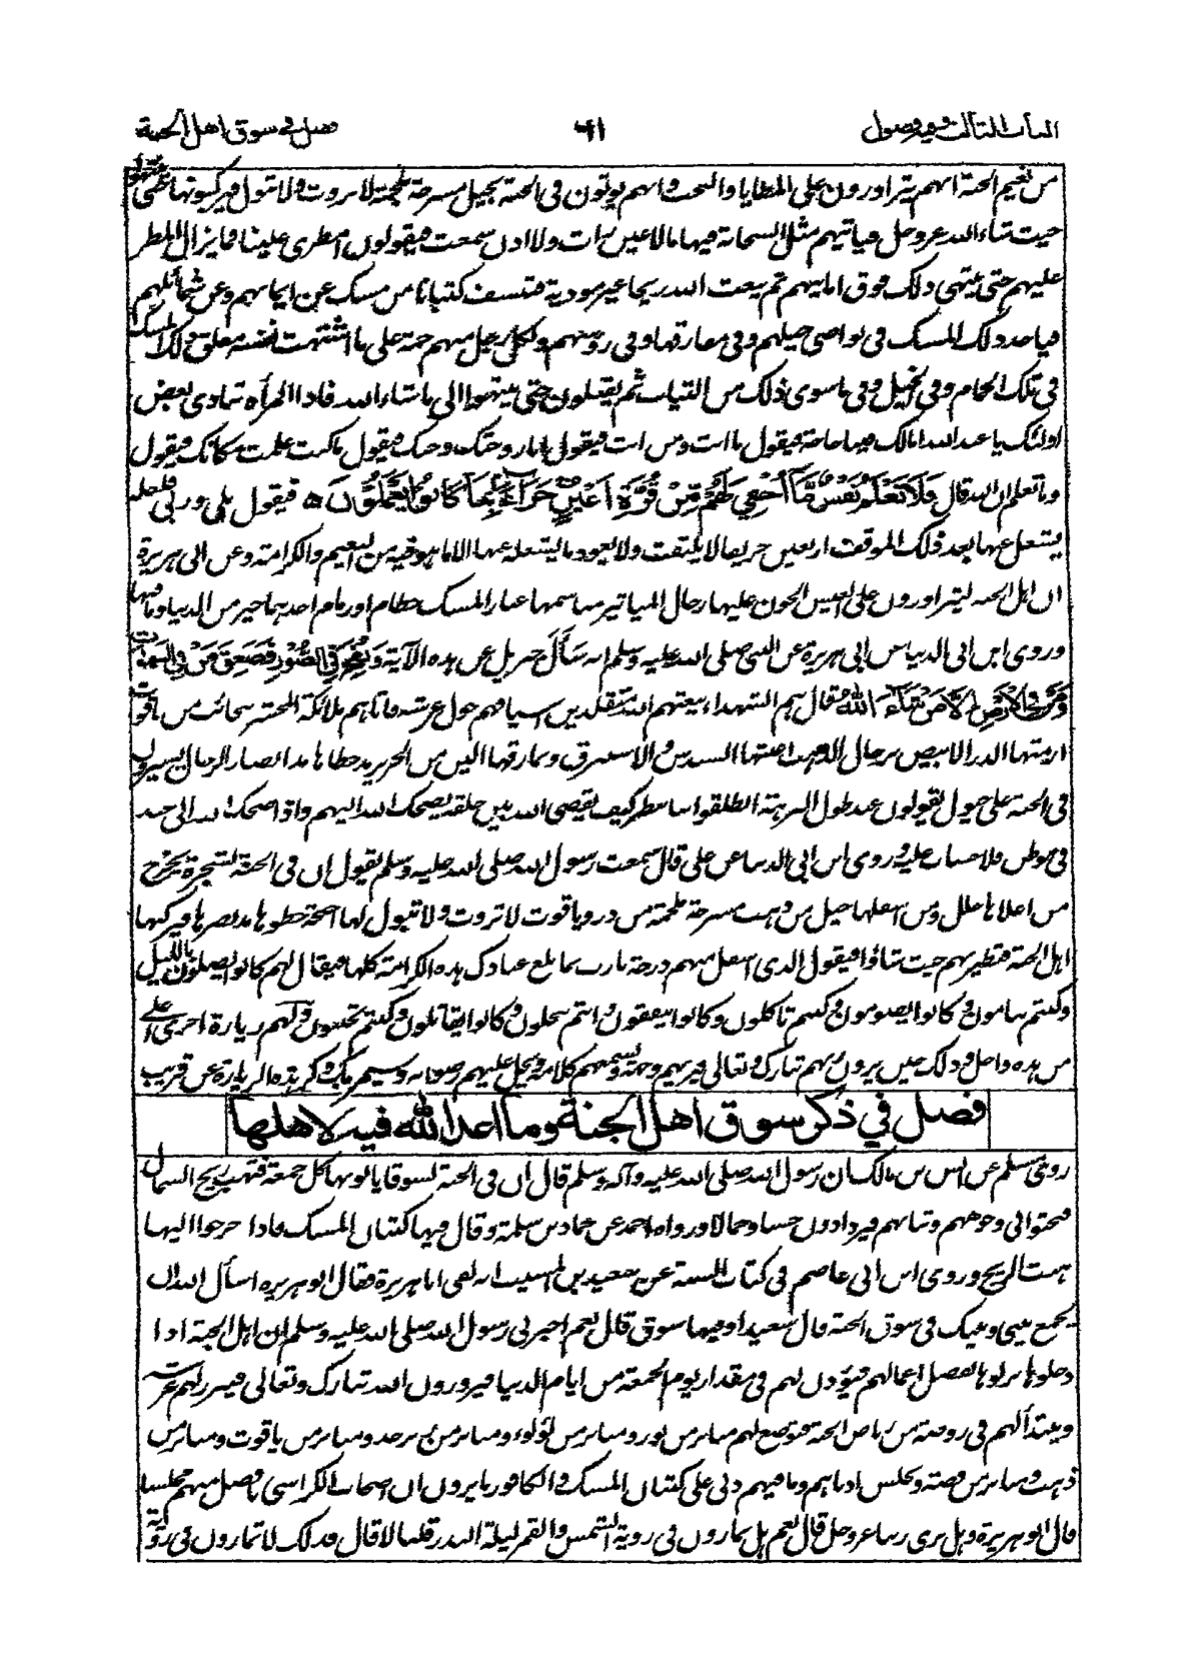 الباب الثالث وفيه فصول ٦١ فصل في سوق اهل الجنة
من نعيم الجنة انهم يتزاورون على المطايا والنجب وانهم يوتون في الجنة بخيل مسرجة ملجمة لا تروث ولا تبول فيركبونها حتى ينتهوا
حيث شاء الله عز وجل فياتيهم مثل السحابة فيها مالا عين رات ولا اذن سمعت فيقولون امطري علينا فما يزال المطر
عليهم حتى ينتهي ذلك فوق امانيهم ثم يبعث الله ريحا غير موذية فتنسف كثبانا من مسك عن ايمانهم وعن شمائلهم
فياخذ ذلك المسك في نواصي خيلهم وفي معارفها وفي رؤسهم ولكل رجل منهم جمة على ما اشتهت نفسه فيتعلق ذلك المسك
في تلك الجمام وفي الخيل وفي ما سوى ذلك من الثياب ثم يقبلون حتى ينتهوا الى ما شاء الله فاذا المرأة تنادي بعض
اولئك يا عبد الله امالك فينا حاجة فيقول ما انت ومن انت فيقول انا زوجتك وحبك فيقول ما كنت علمت مكانك فيقول
وما تعلم ان الله قال فَلَا تَعْلَمُ نَفْسٌ مَّا أُخْفِيَ لَهُم مِّنْ قُرَّةِ أَعْيُنٍ جَزَاءً بِمَا كَانُوا يَعْمَلُونَ ه فيقول بلى وربي فلعله
يشتغل عنها بعد ذلك الموقف اربعين خريفا لا يلتفت ولا يعود ما يشتغله عنها الا ما هو فيه من النعيم والكرامة وعن ابي هريرة
ان اهل الجنة ليتزاورون على العيس الجون عليها رحال الميا تثير مناسمها غبار المسك خطام او زمام احدها خير من الدنيا وما فيها
وروى ابن ابي الدنيا عن ابي هريرة عن النبي صلى الله عليه وسلم انه سَأَلَ جبريل عن هذه الآية وَنُفِخَ فِي الصُّورِ فَصَعِقَ مَنْ فِي السَّمٰوٰتِ
وَمَنْ فِي الْأَرْضِ إِلَّا مَنْ شَاءَ اللهُ قال هم الشهداء يبعثهم الله متقلدين اسيافهم حول عرشه فاتاهم ملائكة المحشر بنجائب من ياقوت
ازمتها الدر الابيض برحال الذهب اعنتها السندس والاستبرق ونمارقها الين من الحرير مد خطاها مد ابصار الرجال يسيرون
في الجنة على خيول يقولون عند طول النزهة انطلقوا بنا ننظر كيف يقضي الله بين خلقه يضحك الله اليهم واذا ضحك الله الى عبد
في موطن فلا حساب عليه وروى ابن ابي الدنيا عن علي قال سمعت رسول الله صلى الله عليه وسلم يقول ان في الجنة لشجرة يخرج
من اعلاها حلل ومن اسفلها خيل من ذهب مسرجة ملجمة من در وياقوت لا تروث ولا تبول لها اجنحة خطوها مد بصرها فيركبها
اهل الجنة فتطير بهم حيث شاؤا فيقول الذي اسفل منهم درجة يا رب بما بلغ عبادك هذه الكرامة كلها فيقال لهم كانوا يصلون بالليل
وكنتم تنامون وكانوا يصومون وكنتم تاكلون وكانوا ينفقون وانتم تبخلون وكانوا يقاتلون وكنتم تجبنون ولهم زيارة اخرى اعلى
من هذه واجل وذلك حين يزورون ربهم تبارك وتعالى فيريهم وجهه ويسمعهم كلامه ويحل عليهم رضوانه وسيمر بك ذكر هذه الزيارة عن قريب
فصل في ذكر سوق اهل الجنة وما اعد الله فيه لاهلها
روى مسلم عن انس بن مالك ان رسول الله صلى الله عليه وآله وسلم قال ان في الجنة لسوقا ياتونها كل جمعة فتهب ريح الشمال
فتحثو في وجوههم وثيابهم فيزدادون حسنا وجمالا ورواه احمد عن حماد بن سلمة وقال فيها كثبان المسك فاذا خرجوا اليها
هبت الريح وروى ابن ابي عاصم في كتاب السنة عن سعيد بن المسيب انه لقي ابا هريرة فقال ابو هريرة اسأل الله ان
يجمع بيني وبينك في سوق الجنة قال سعيد اوفيها سوق قال نعم اخبرني رسول الله صلى الله عليه وسلم ان اهل الجنة اذا
دخلوها نزلوها بفضل اعمالهم فيؤذن لهم في مقدار يوم الجمعة من ايام الدنيا فيزورون الله تبارك وتعالى فيبرز لهم عرشه
ويتبدأ لهم في روضة من رياض الجنة فتوضع لهم منابر من نور ومنابر من لؤلؤ ومنابر من زبرجد ومنابر من ياقوت ومنابر من
ذهب ومنابر من فضة ويجلس ادناهم وما فيهم دني على كثبان المسك والكافور ما يرون ان اصحاب الكراسي بافضل منهم مجلسا
قال ابو هريرة وهل نرى ربنا عز وجل قال نعم هل تمارون في روية الشمس والقمر ليلة البدر قلنا لا قال فذلك لا تمارون في رؤية